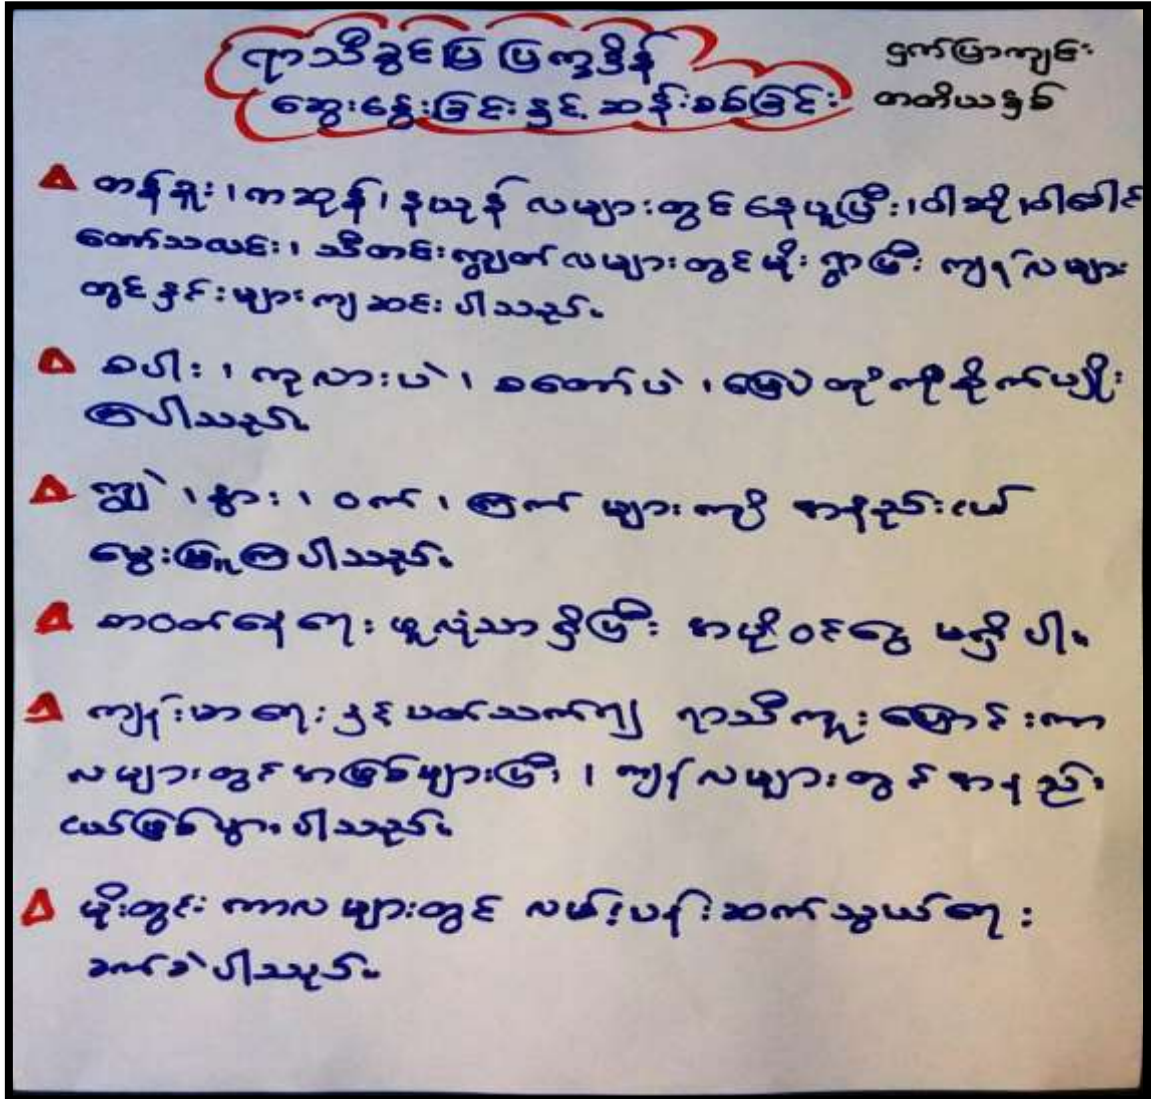 ရာသီခွင်ပြ ပြက္ခဒိန်
ဆွေးနွေးခြင်းနှင့် ဆန်းစစ်ခြင်း
ငှက်ပြာကျင်း
တတိယနှစ်
တန်ခူး၊ ကဆုန်၊ နယုန် လများတွင် နေပူပြီး၊ ဝါဆို၊ ဝါခေါင်
တော်သလင်း၊ သီတင်းကျွတ် လများတွင် မိုးရွာပြီး ကျန်လများ
တွင် နှင်းများ ကျဆင်းပါသည်။
စပါး၊ ကုလားပဲ၊ စတော်ပဲ၊ မြေပဲ တို့ကို စိုက်ပျိုး
ကြပါသည်။
ကျွဲ၊ နွား၊ ဝက်၊ ကြက် များကို အနည်းငယ်
မွေးမြူကြပါသည်။
စားဝတ်နေရေး ဖူလုံသာရှိပြီး အပိုဝင်ငွေ မရှိပါ။
ကျန်းမာရေးနှင့်ပတ်သက်၍ ရာသီကူးပြောင်းကာ
လများတွင် အဖြစ်များပြီး၊ ကျန်လများတွင် အနည်း
ငယ်ဖြစ်ပွားပါသည်။
မိုးတွင်းကာလများတွင် လမ်းပန်းဆက်သွယ်ရေး
ခက်ခဲပါသည်။